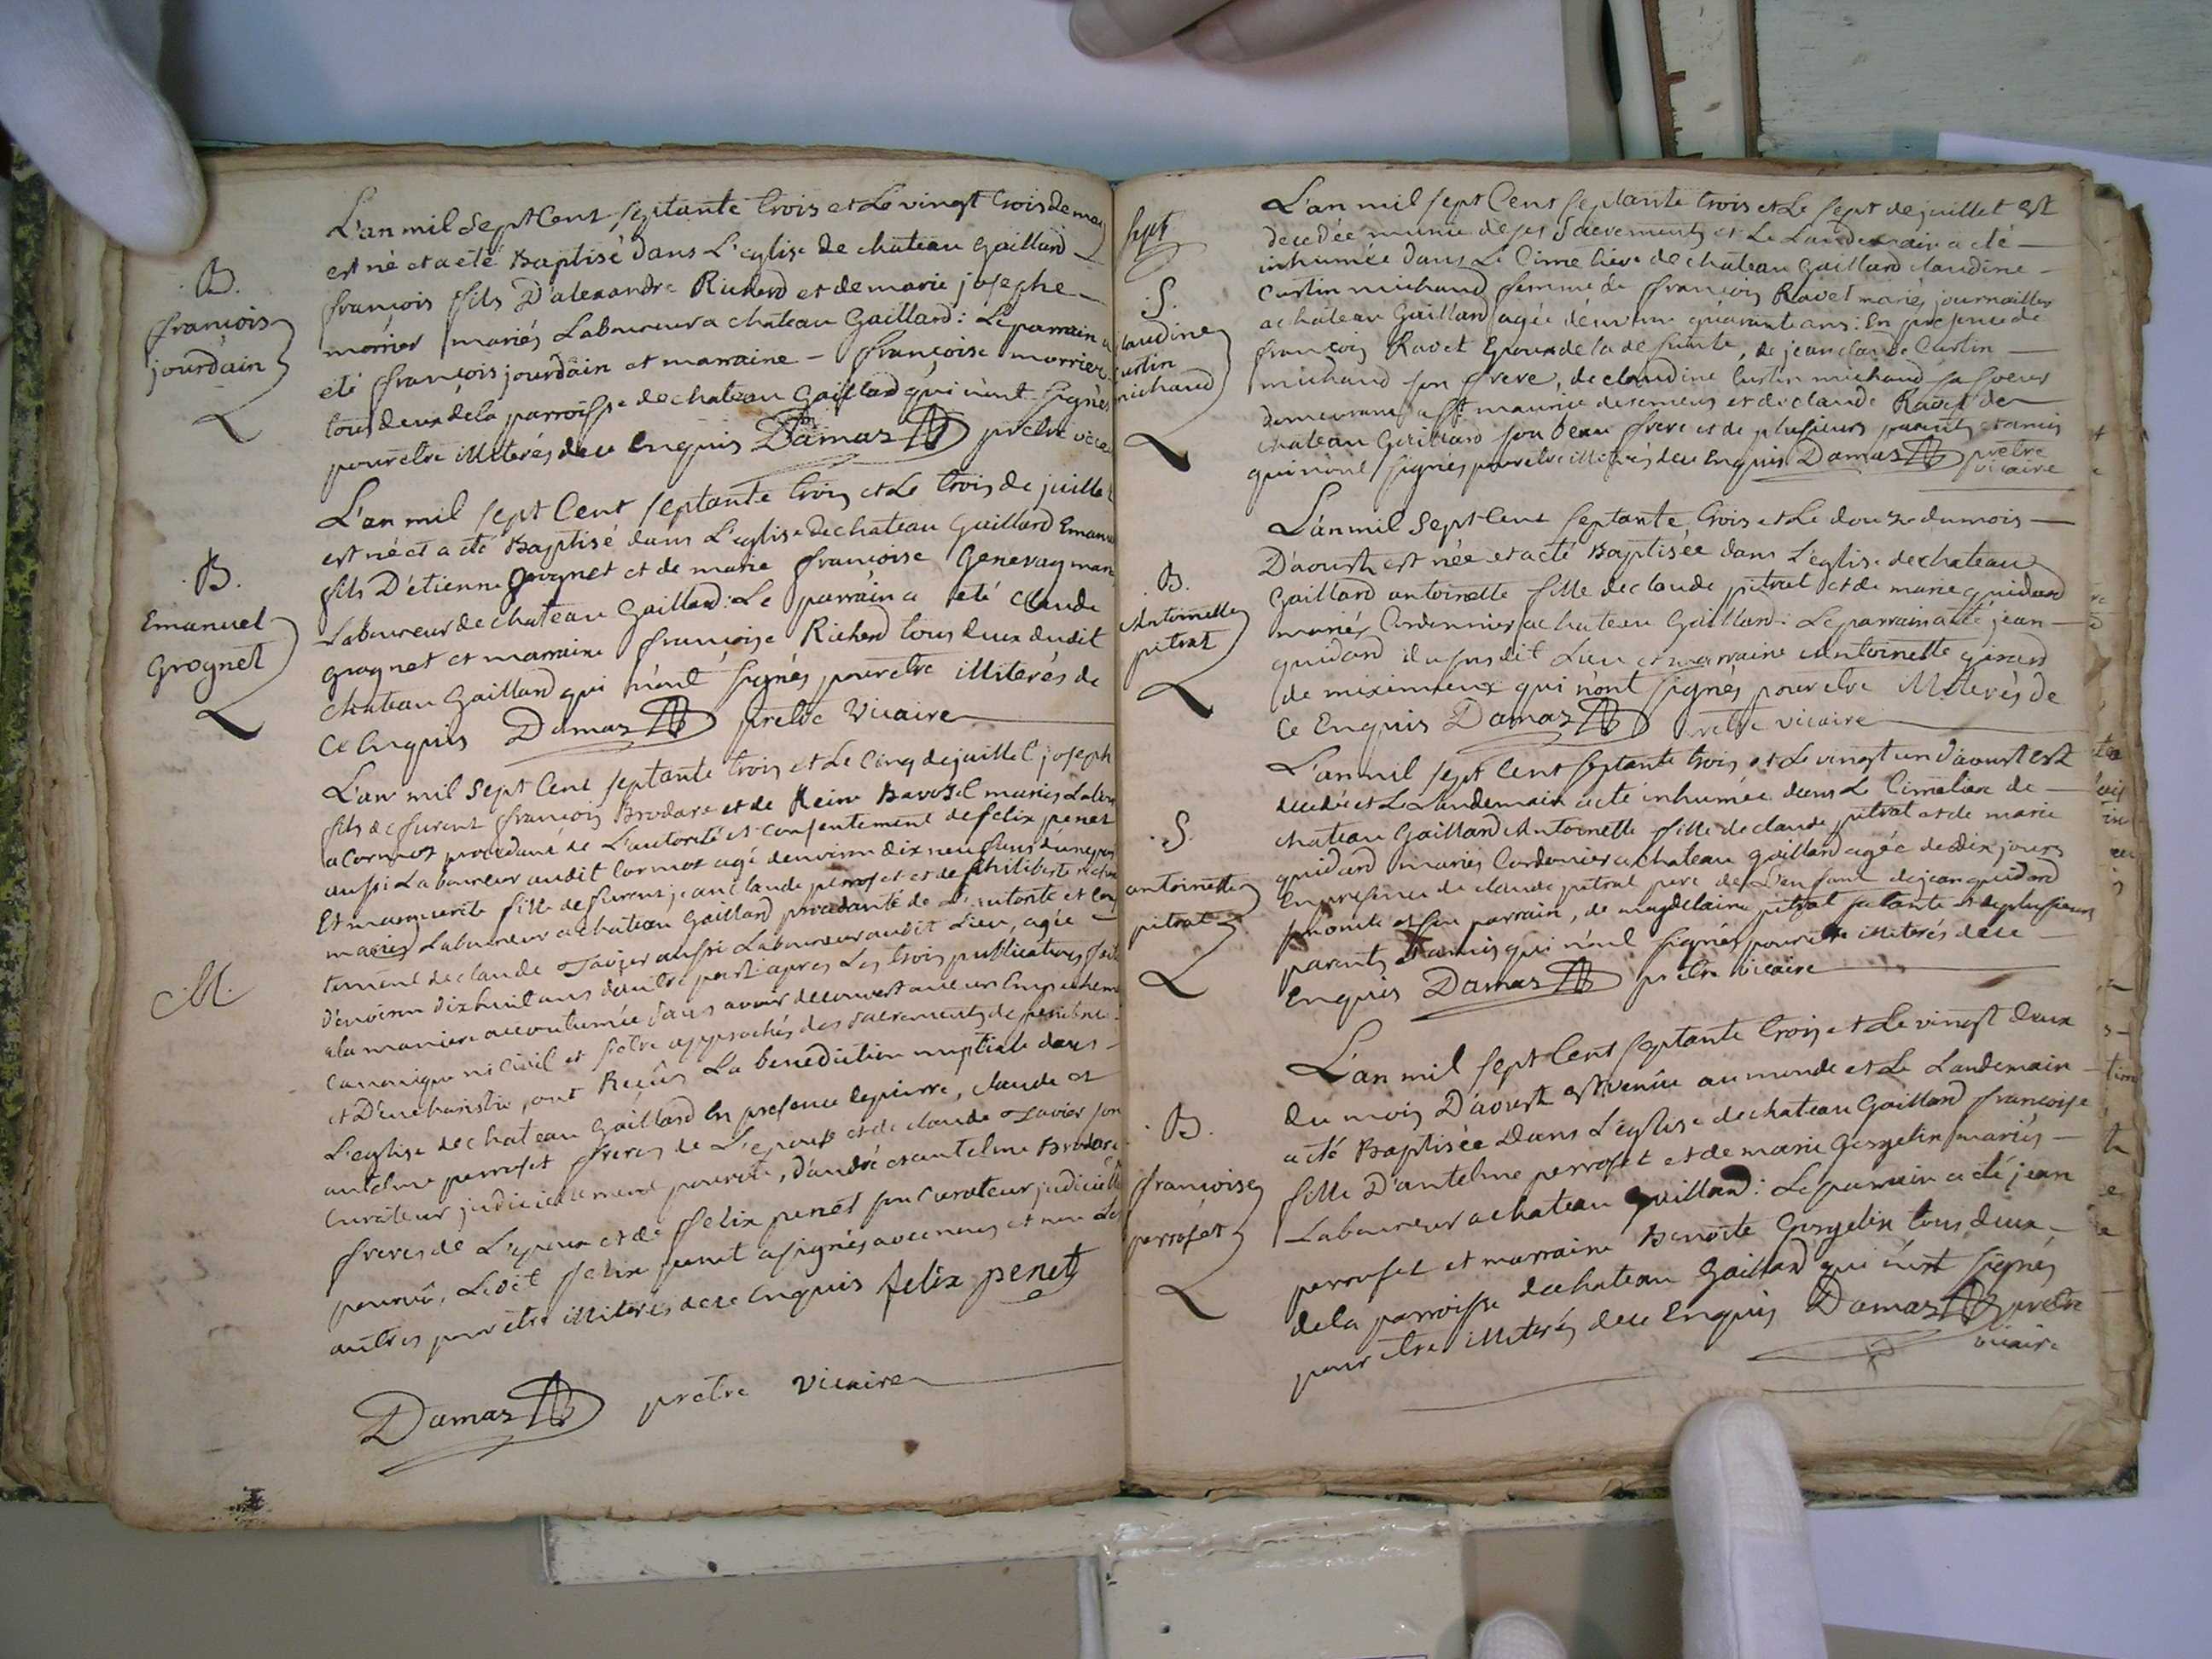 L'an mil Sept Cent Septante trois et Le vingt trois de may
est né et a été Baptisé dans L'eglise de chateau gaillard
B.
françois
jourdain
françois fils D'alexandre Richerd et de marie josephe
morrier mariés Laboureur a chateau Gaillard: Le parrain a
eté françois jourdain et marraine - françoise morrier
tous deux de la parroisse de chateau Gaillard qui n'ont signés
pour etre illiterés de ce Enquis Damaz prêtre vicaire
L'an mil sept Cent septante trois et Le trois de juillet
est né et a eté Baptisé dans L'eglise de chateau Gaillard Emanuel
B.
Emanuel
Grognet
fils D'étienne Grognet et de marie françoise Genevay mariés
Laboureur de chateau Gaillard: Le parrain a eté Claude
grognet et marraine françoise Richerd tous deux dudit
chateau Gaillard qui n'ont signés pour etre illiterés de
Ce Enquis Damaz prêtre Vicaire
L'an mil Sept Cent septante trois et Le Cinq de juillet joseph
fils de furent françois Brodare et de Reine mariés
a Cormoz procedant de L'autorité et consentement de felix penet
aussi Laboureur audit Cormoz agé denviron dix neuf ans d'une part
Et marguerite fille de furent jean claude perroset et de philiberte
mariés Laboureur a chateau Gaillard procedante de L'autorité et consen
tement de claude Tavier aussi Laboureur audit Lieu, agée
d'environ dix huit ans d'autre part: apres Les trois publications faites
M.
a la maniere accoutumée sans avoir decouvert aucun Empechement
Canonique ni Civil et s'etre approchés des sacrements de penitence
et D'eucharistie, ont Reçûs La benediction nuptiale dans
L'eglise de chateau Gaillard En presence de pierre, claude et
antelme perroset freres de L'epouse et de claude Tavier son
Curateur judiciellement pourvû, d'andré et antelme Brodare
freres de L'epoux et de felix penet son Curateur judiciellement
pourvû, Ledit felix penet a signés avec nous et non Les
autres pour etre illiterés de ce Enquis felix penet
Damaz prêtre vicaire
Sept
L'an mil sept Cent septante trois et Le sept de juillet est
decedée munie de ses Sacrements et Le Landemain a eté
inhumée dans Le Cimetiere de chateau Gaillard claudine
S.
Claudine
Curtin
michaud
Curtin michaud femme de françois Ravet mariés journaillier
a chateau Gaillard agée d'environ quarante ans: En presence de
françois Ravet Epoux de la defunte, de jean claude Curtin
michaud son frere, de claudine Curtin michaud sa soeur
demeurant a st maurice de remens et de claude Ravet de
chateau Gaillard son beau frere et de plusieurs parents et amis
qui n'ont signés pour etre illiterés de ce Enquis Damaz prêtre
vicaire
L'an mil Sept Cent septante trois et Le douze du mois
D'aoust est née et a eté Baptisée dans L'eglise de chateau
B.
Antoinette
pitrat
Gaillard antoinette fille de claude pitrat et de marie guidard
mariés Cordonnier a chateau Gaillard: Le parrain a eté jean
guidard du susdit Lieu et marraine Antoinette girard
de miximieux qui n'ont signés pour etre illiterés de
Ce Enquis Damaz prêtre vicaire
L'an mil sept Cent septante trois et Le vingt un d'aoust est
decedée et Le Landemain a eté inhumée dans Le Cimetiere de
S.
antoinette
pitrat
chateau Gaillard Antoinette fille de claude pitrat et de marie
guidard mariés Cordonnier a chateau Gaillard agée de dix jours
En presence de claude pitrat pere de L'enfant de jean guidard
et son parrain, de magdelaine pitrat sa tante et de plusieurs
parents et amis qui n'ont signés pour etre illiterés de ce
Enquis Damaz prêtre vicaire
L'an mil sept Cent septante trois et Le vingt deux
du mois D'aoust est venüe au monde et Le Landemain
a eté Baptisée Dans L'eglise de chateau Gaillard françoise
B.
françoise
perroset
fille D'antelme perroset et de marie Gesgelin mariés
Laboureur a chateau Gaillard: Le parrain a eté jean
perroset et marraine Benoite Gesgelin tous deux
de la parroisse de chateau Gaillard qui n'ont signés
pour etre illiterés de ce Enquis Damaz prêtre
vicaire